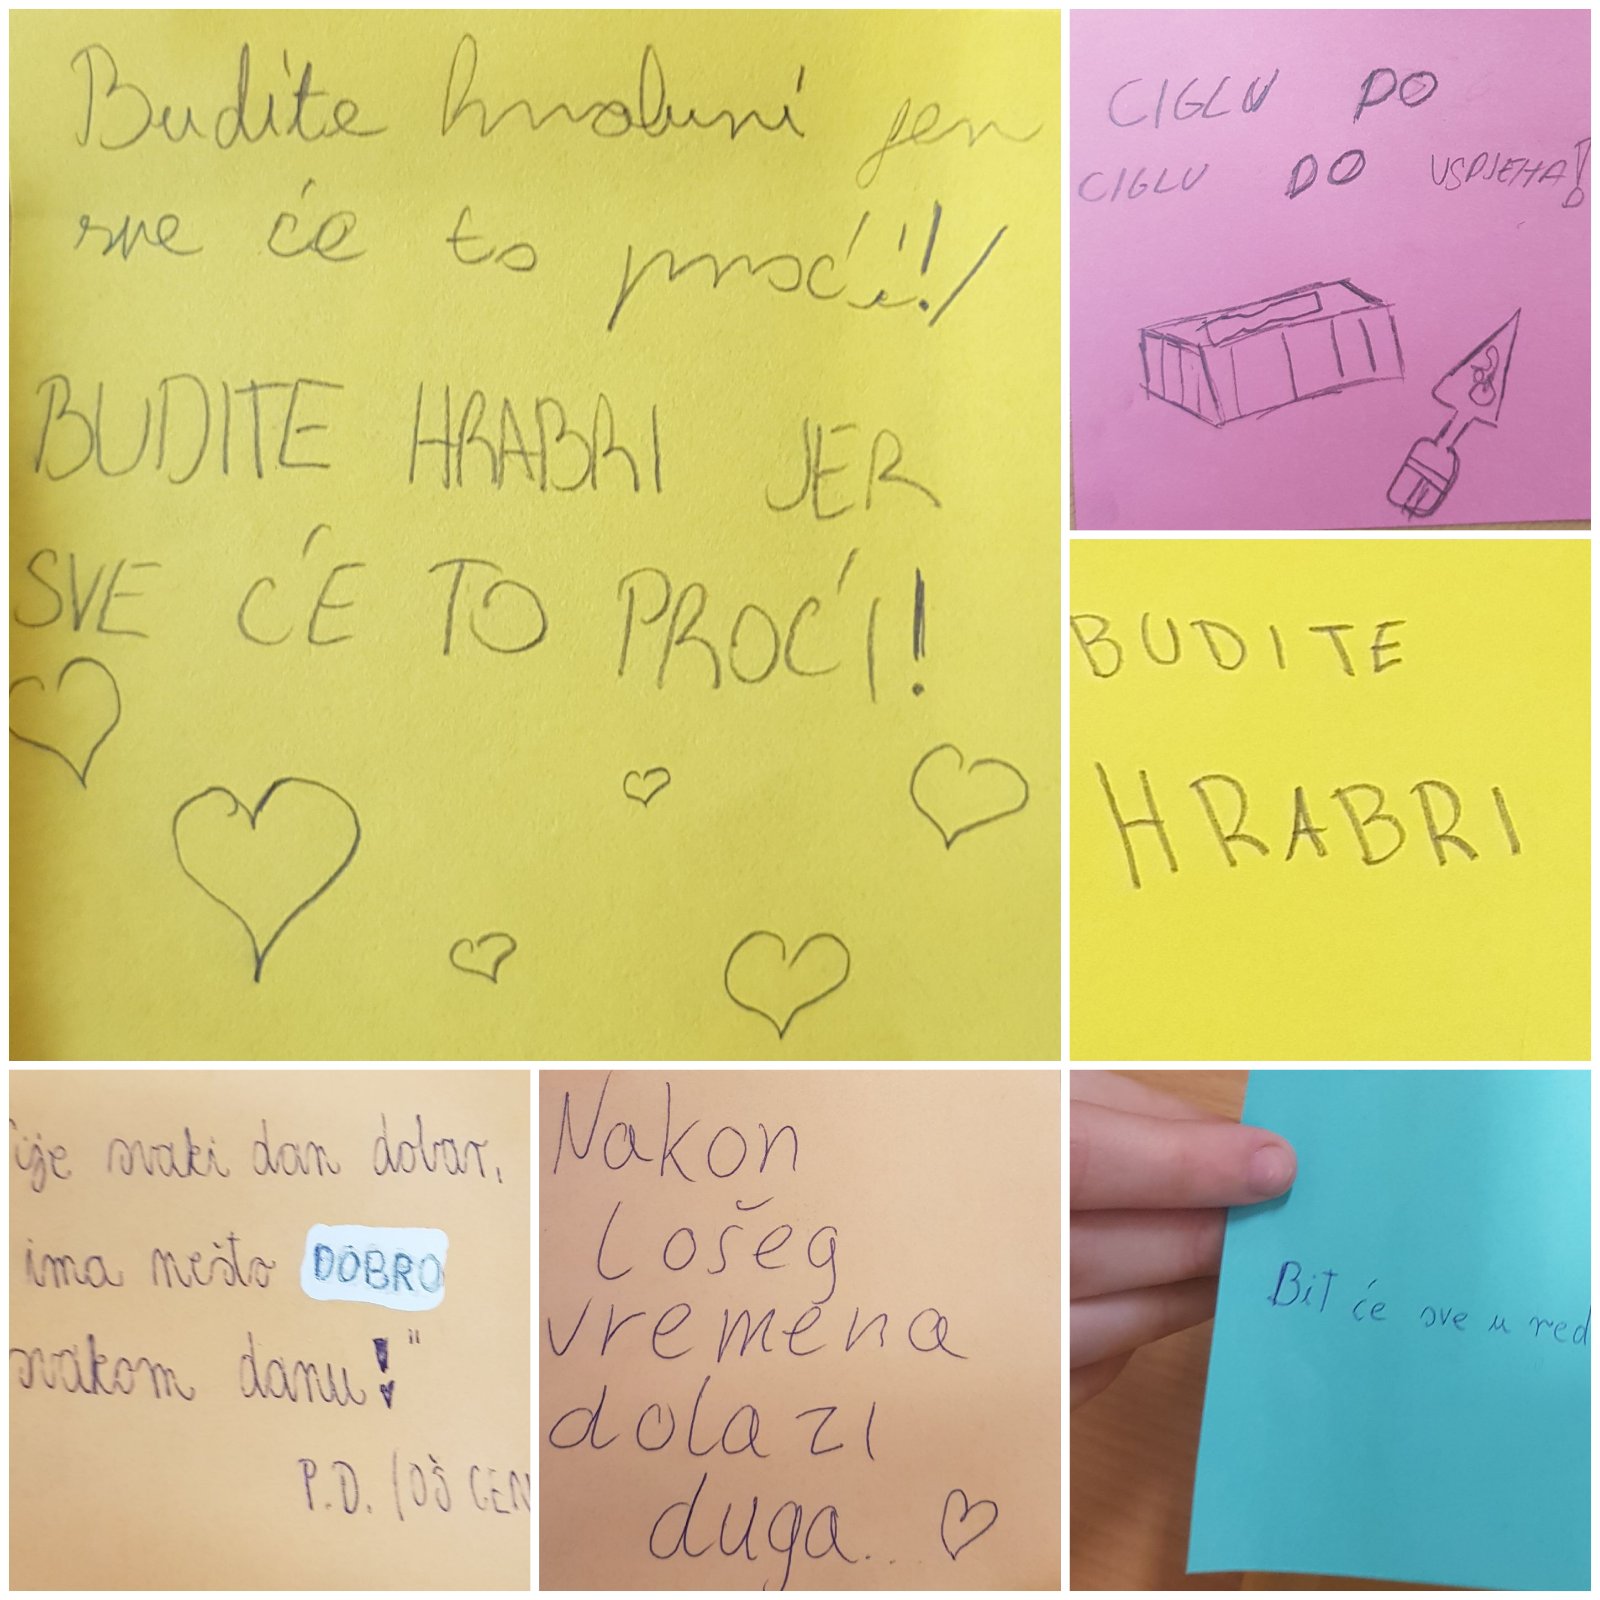 Budite hrabri jer
sve će to proći!!
BUDITE HRABRI JER
SVE ĆE TO PROĆI!
CIGLU PO
CIGLU DO USPJEHA!
BUDITE
HRABRI
ije svaki dan dobar,
ima nešto DOBRO
svakom danu!"
P.D. (OŠ CEN
Nakon
lošeg
vremena
dolazi
duga...
Bit će sve u red